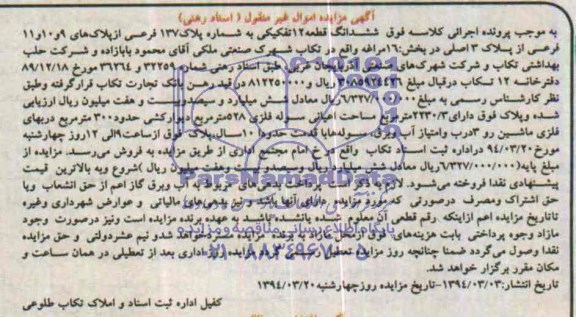 آگهی مزایده اموال غیر منقول ( اسناد رهنی)
به موجب پرونده اجرائی کلاسه فوق ششدانگ قطعه۱۲تفکیکی به شماره پلاک۱۳۷ فرعی ازپلاک‌های ۹و۱۰و۱۱
فرعی از پلاک ۳ اصلی در بخش:۱۶مراغه واقع در تکاب شهرک صنعتی ملکی آقای محمود بابازاده و شرکت حلب
بهداشتی تکاب و شرکت شهرک‌های آذربایجان غربی طبق اسناد رهنی شماره ۳۲۲۵۹ و ۳۶۲۶۴ مورخ ۸۹/۱۲/۱۸
دفترخانه ۱۲ تکاب درقبال مبلغ ریال در قید رهن بانک تجارت تکاب قرارگرفته وطبق
نظر کارشناس رسمی به مبلغ ۶/۳۲۷/۰۰۰/۰۰۰ریال معادل شش میلیارد و سیصدوبیست و هفت میلیون ریال ارزیابی
شده وپلاک فوق دارای۲۲۳۰/۳مترمربع مساحت اعیانی سوله فلزی ۵۲۸مترمربع دیوارکشی حدود۳۰۰ مترمربع دربهای
فلزی ماشین رو ۳درب وامتیاز آب وبرق سوله‌هابا قدمت حدود۱۰سال،پلاک فوق ازساعت۹الی ۱۲روز چهارشنبه
مورخ۹۴/۰۳/۲۰ دراداره ثبت اسناد تکاب واقع درخ امام مجتمع اداری از طریق مزایده به فروش می‌رسد. مزایده از
مبلغ پایه(۶/۳۲۷/۰۰۰/۰۰۰ریال معادل شش میلیارد ریال وسیصد وبیست وهفت میلیون ریال )شروع وبه بالاترین قیمت
پیشنهادی نقدا فروخته می‌شود. لازم به ذکر است پرداخت بدهی‌های مربوط به آب وبرق گاز اعم از حق انشعاب ویا
حق اشتراک ومصرف درصورتی که مورد مزایده دارای آنها باشد ونیز بدهی‌های مالیاتی و عوارض شهرداری وغیره
تاتاریخ مزایده اعم ازاینکه رقم قطعی آن معلوم شده یانشده باشد به عهده برنده مزایده است ونیز درصورت وجود
مازاد وجوه پرداختی بابت هزینه‌های فوق ازمحل مازاد به برنده مزایده مسترد خواهد شدو نیم عشردولتی و حق مزایده
نقدا وصول می‌گردد ضمنا چنانچه روز مزایده تعطیل رسمی گردد مزایده روز اداری بعد از تعطیلی در همان ساعت و
مکان مقرر برگزار خواهد شد.
تاریخ انتشار:۱۳۹۴/۰۳/۰۳-تاریخ مزایده روزچهارشنبه۱۳۹۴/۰۳/۲۰
کفیل اداره ثبت اسناد و املاک تکاب طلوعی
ParsNamadData
پایگاه اطلاع رسانی مناقصه ومزایده
۰۲۱-۸۸۳۴۹۶۷۰-۵